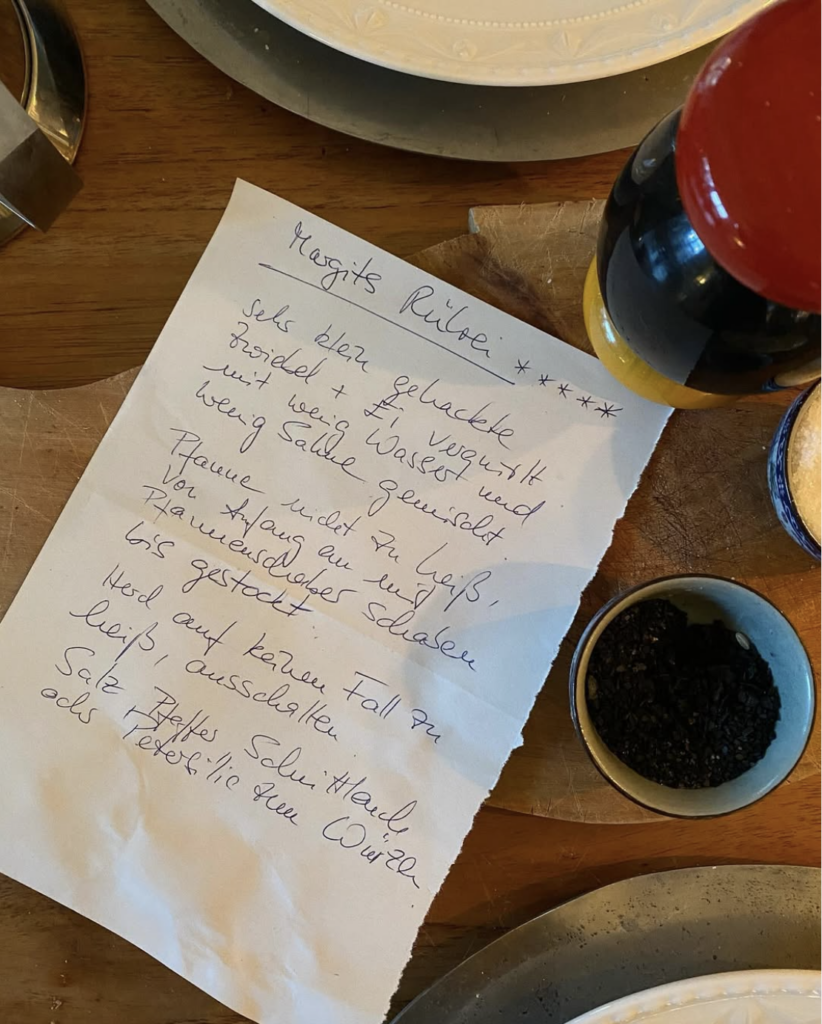 Margits Rührei *****
sehr klein gehackte
Zwiebel + Ei, verquirlt
mit wenig Wasser und
wenig Sahne gemischt.
Pfanne nicht zu heiß,
von Anfang an mit
Pfannenschaber schaben
bis gestockt.
Herd auf keinen Fall zu
heiß, ausschalten.
Salz Pfeffer Schnittlauch
oder Petersilie zum Würzen